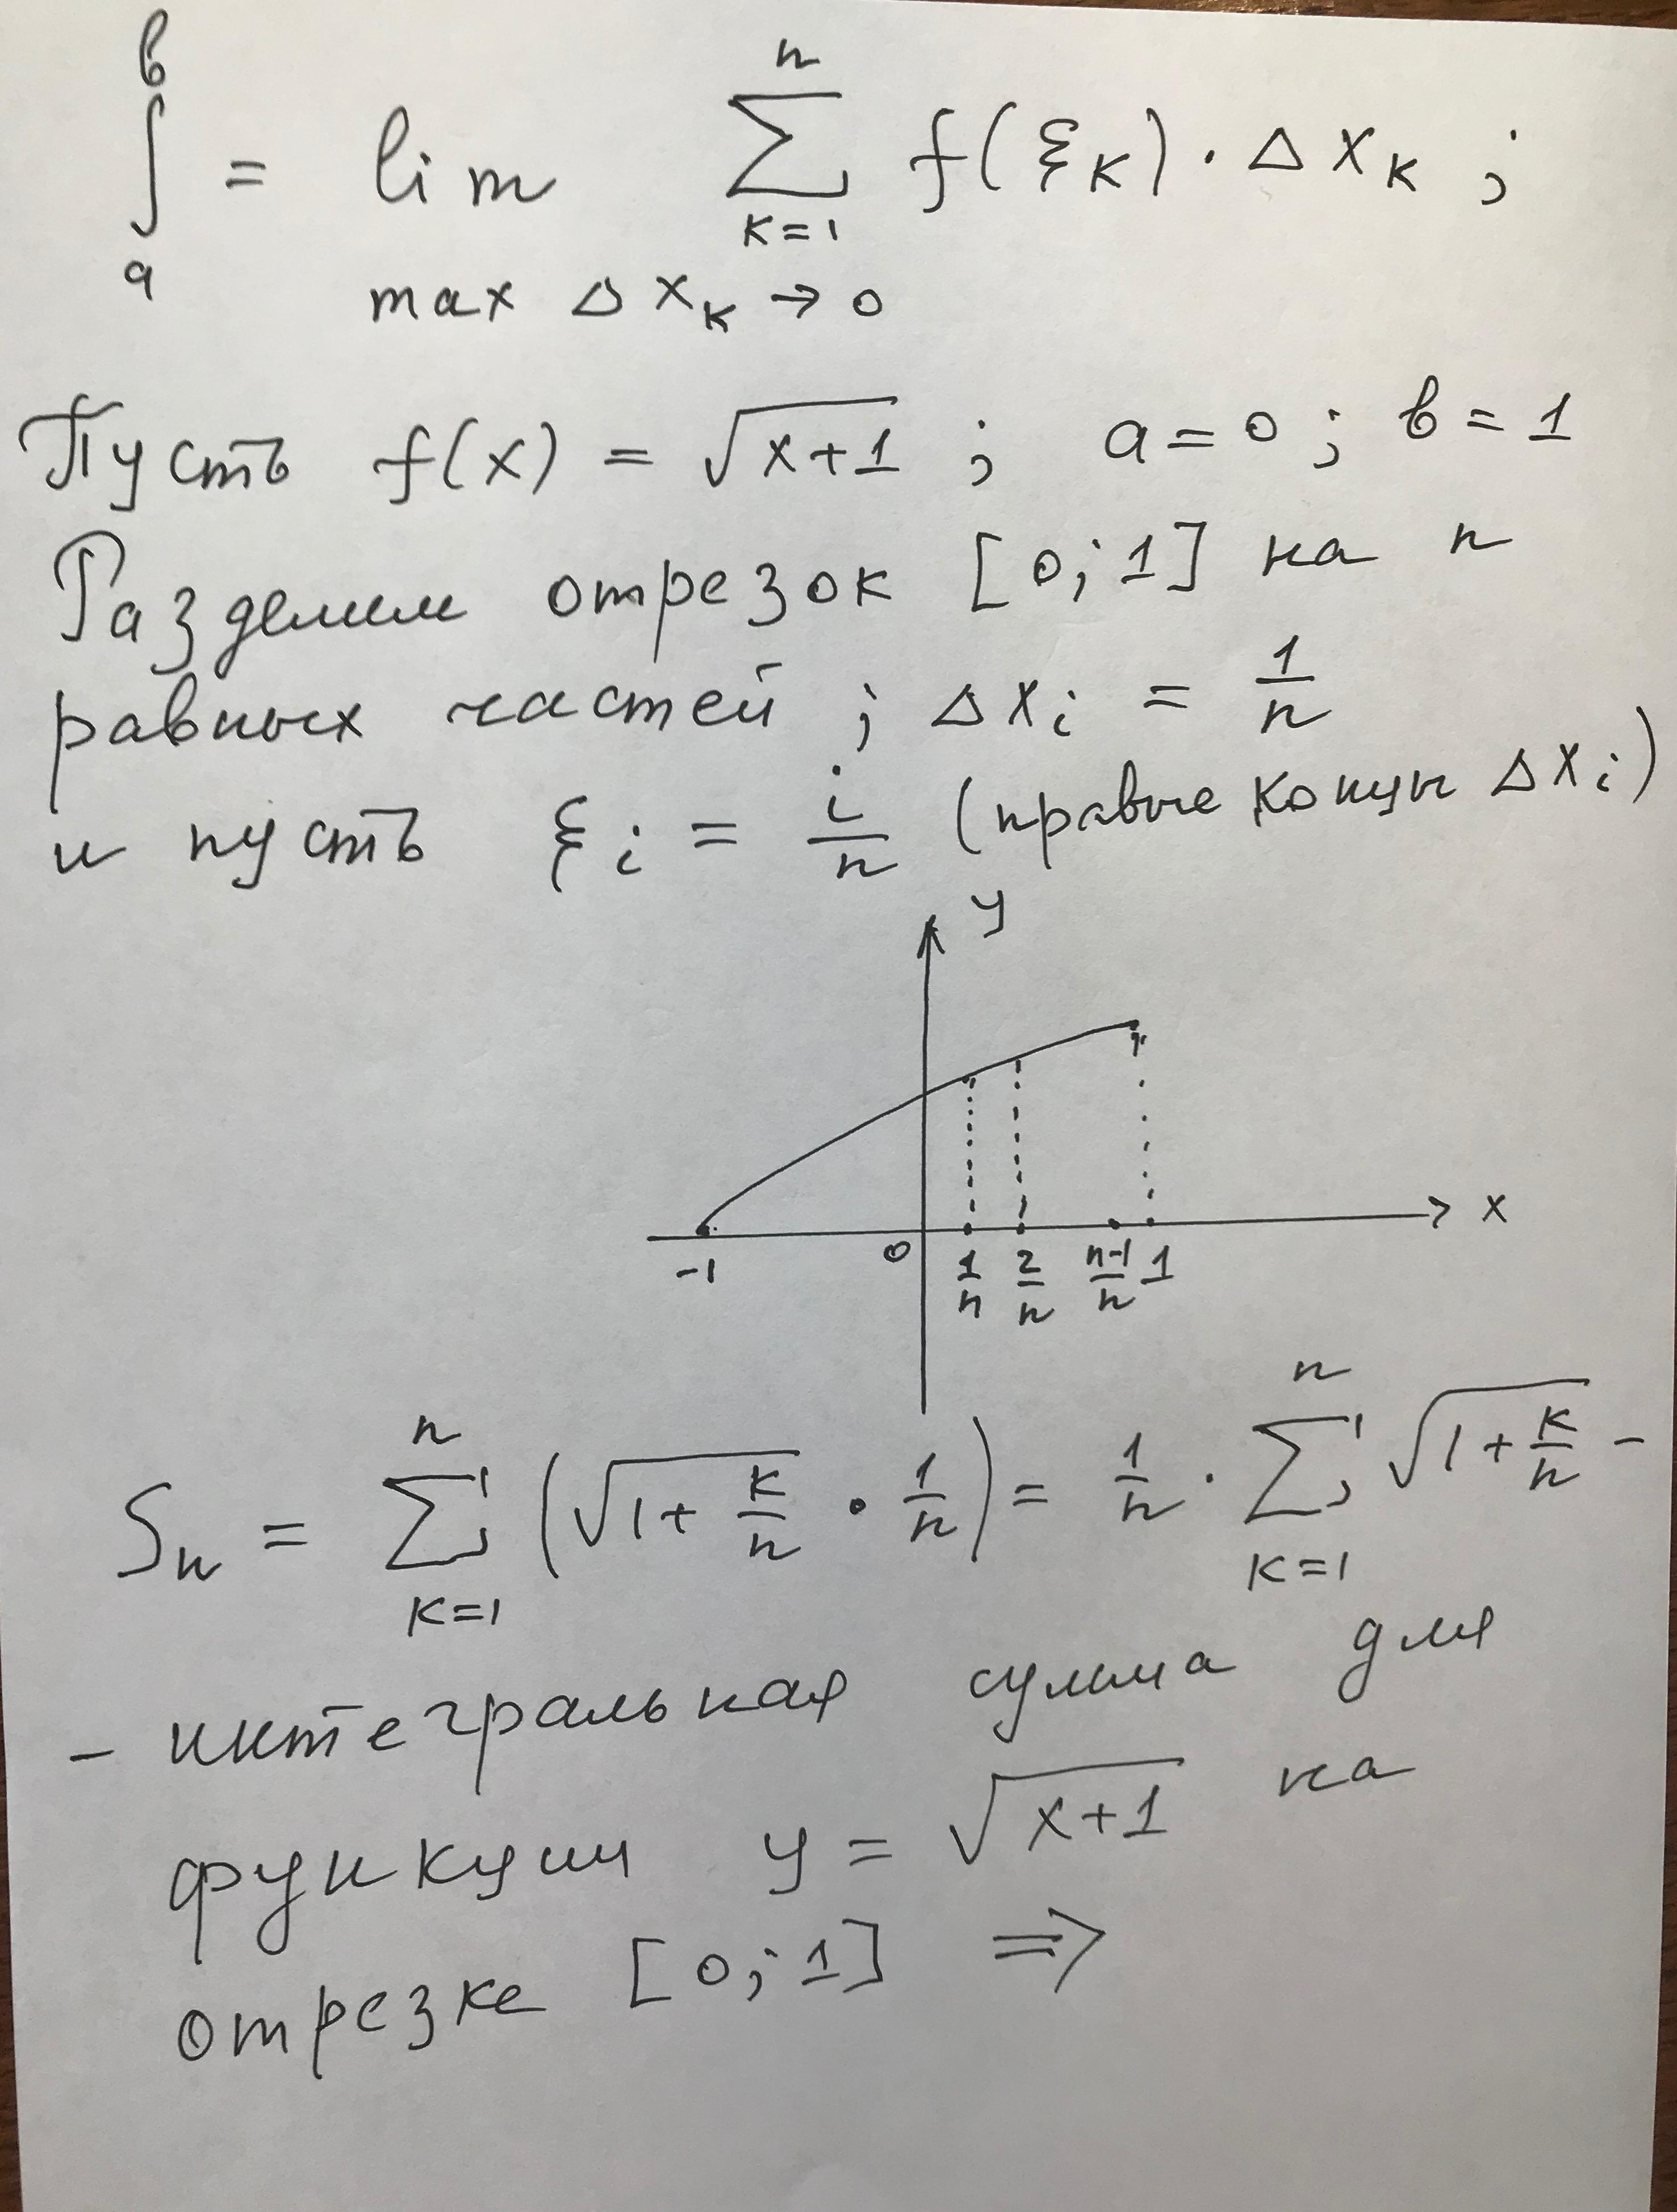 ∫_a^в = lim_{max Δx_k → 0} ∑_{k=1}^{n} f(ξ_k) · Δx_k ;
Пусть f(x) = √(x+1) ; a = 0 ; в = 1
Разделим отрезок [0; 1] на n
равных частей ; Δx_i = 1/n
и пусть ξ_i = i/n (правые концы Δx_i)
y
x
-1 0 1/n 2/n (n-1)/n 1
S_n = ∑_{k=1}^{n} (√(1 + k/n) · 1/n) = 1/n · ∑_{k=1}^{n} √(1 + k/n) –
– интегральная сумма для
функции y = √(x+1) на
отрезке [0; 1] ⇒